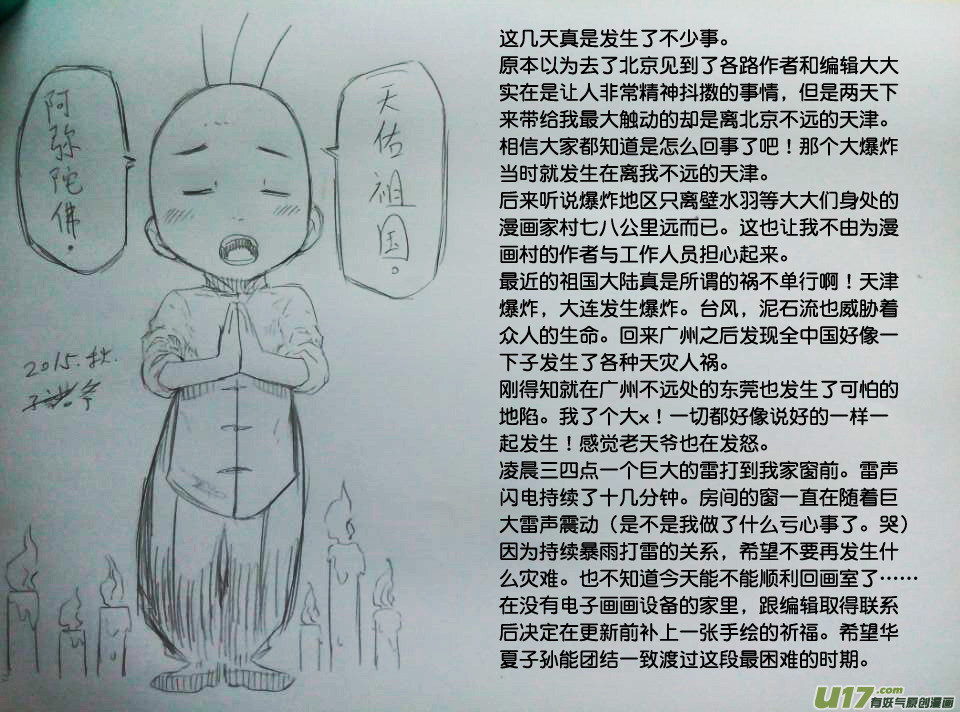 阿弥陀佛。
天佑祖国。
2015.秋.
这几天真是发生了不少事。
原本以为去了北京见到了各路作者和编辑大大
实在是让人非常精神抖擞的事情，但是两天下
来带给我最大触动的却是离北京不远的天津。
相信大家都知道是怎么回事了吧！那个大爆炸
当时就发生在离我不远的天津。
后来听说爆炸地区只离壁水羽等大大们身处的
漫画家村七八公里远而已。这也让我不由为漫
画村的作者与工作人员担心起来。
最近的祖国大陆真是所谓的祸不单行啊！天津
爆炸，大连发生爆炸。台风，泥石流也威胁着
众人的生命。回来广州之后发现全中国好像一
下子发生了各种天灾人祸。
刚得知就在广州不远处的东莞也发生了可怕的
地陷。我了个大x！一切都好像说好的一样一
起发生！感觉老天爷也在发怒。
凌晨三四点一个巨大的雷打到我家窗前。雷声
闪电持续了十几分钟。房间的窗一直在随着巨
大雷声震动（是不是我做了什么亏心事了。哭）
因为持续暴雨打雷的关系，希望不要再发生什
么灾难。也不知道今天能不能顺利回画室了……
在没有电子画画设备的家里，跟编辑取得联系
后决定在更新前补上一张手绘的祈福。希望华
夏子孙能团结一致渡过这段最困难的时期。
U17.com
有妖气原创漫画